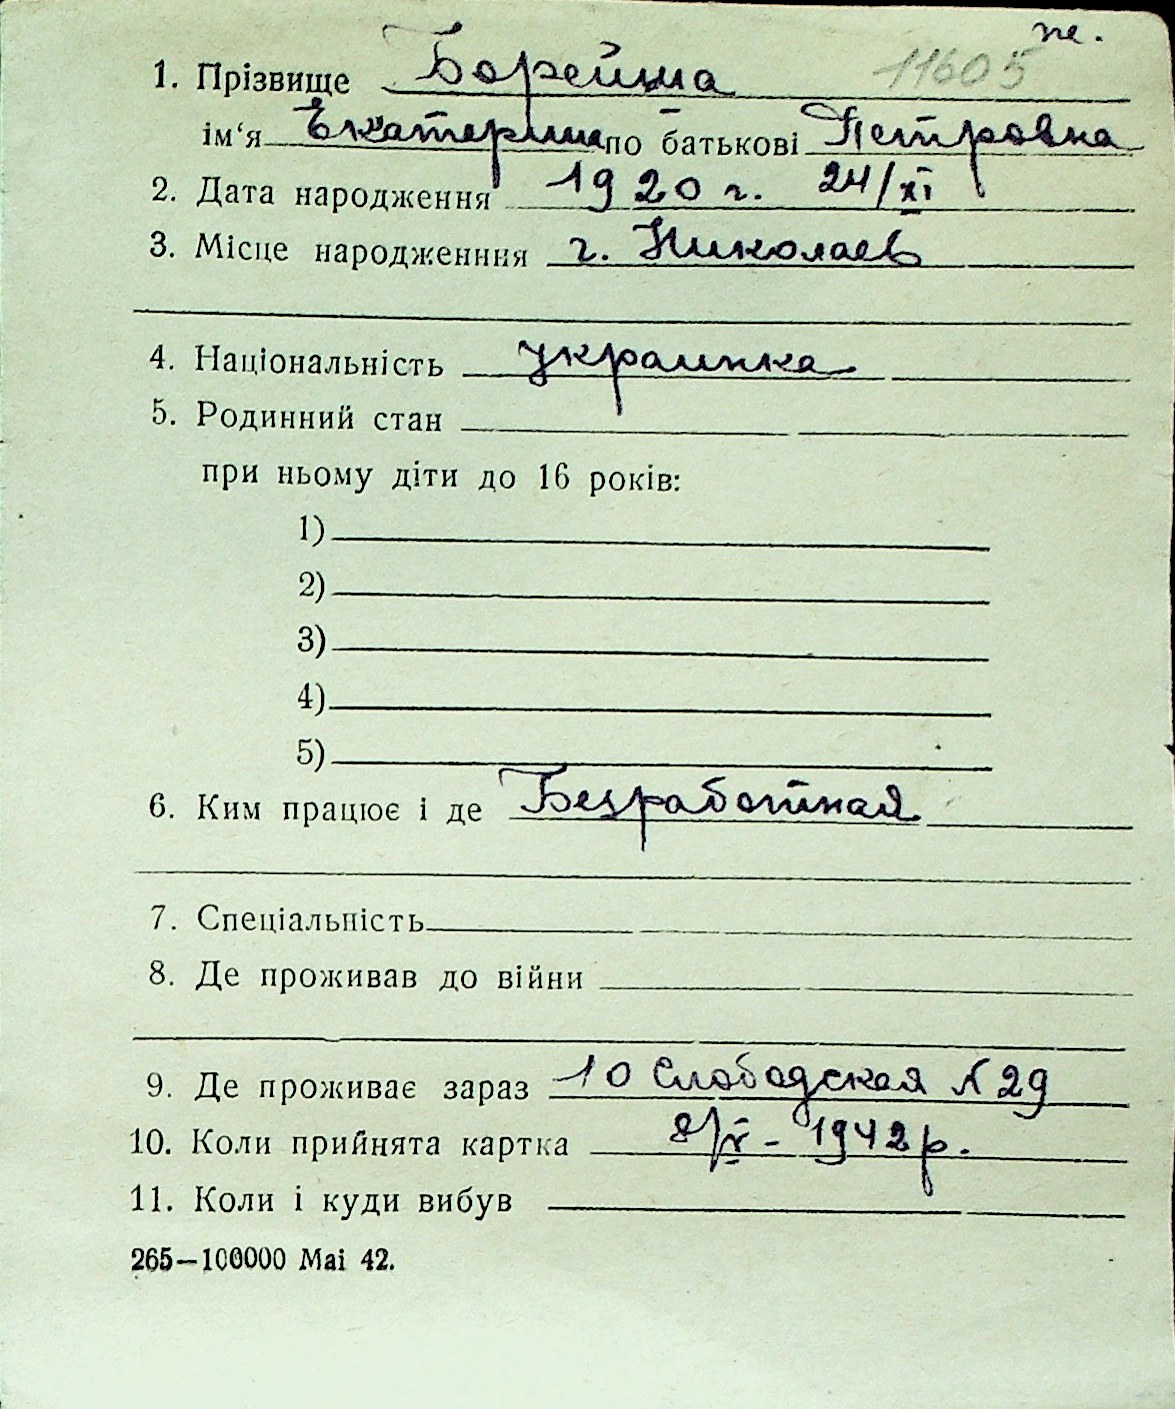 11605
1. Прізвище Борейша
ім‘я Екатерина по батькові Петровна
2. Дата народження 1920 г. 24/XI
3. Місце народженння г. Николаев
4. Національність украинка
5. Родинний стан
при ньому діти до 16 років:
1)
2)
3)
4)
5)
6. Ким працює і де Безработная
7. Спеціальність
8. Де проживав до війни
9. Де проживає зараз 10 Слободская N 29
10. Коли прийнята картка 8/V - 1942 р.
11. Коли і куди вибув
265—100000 Mai 42.